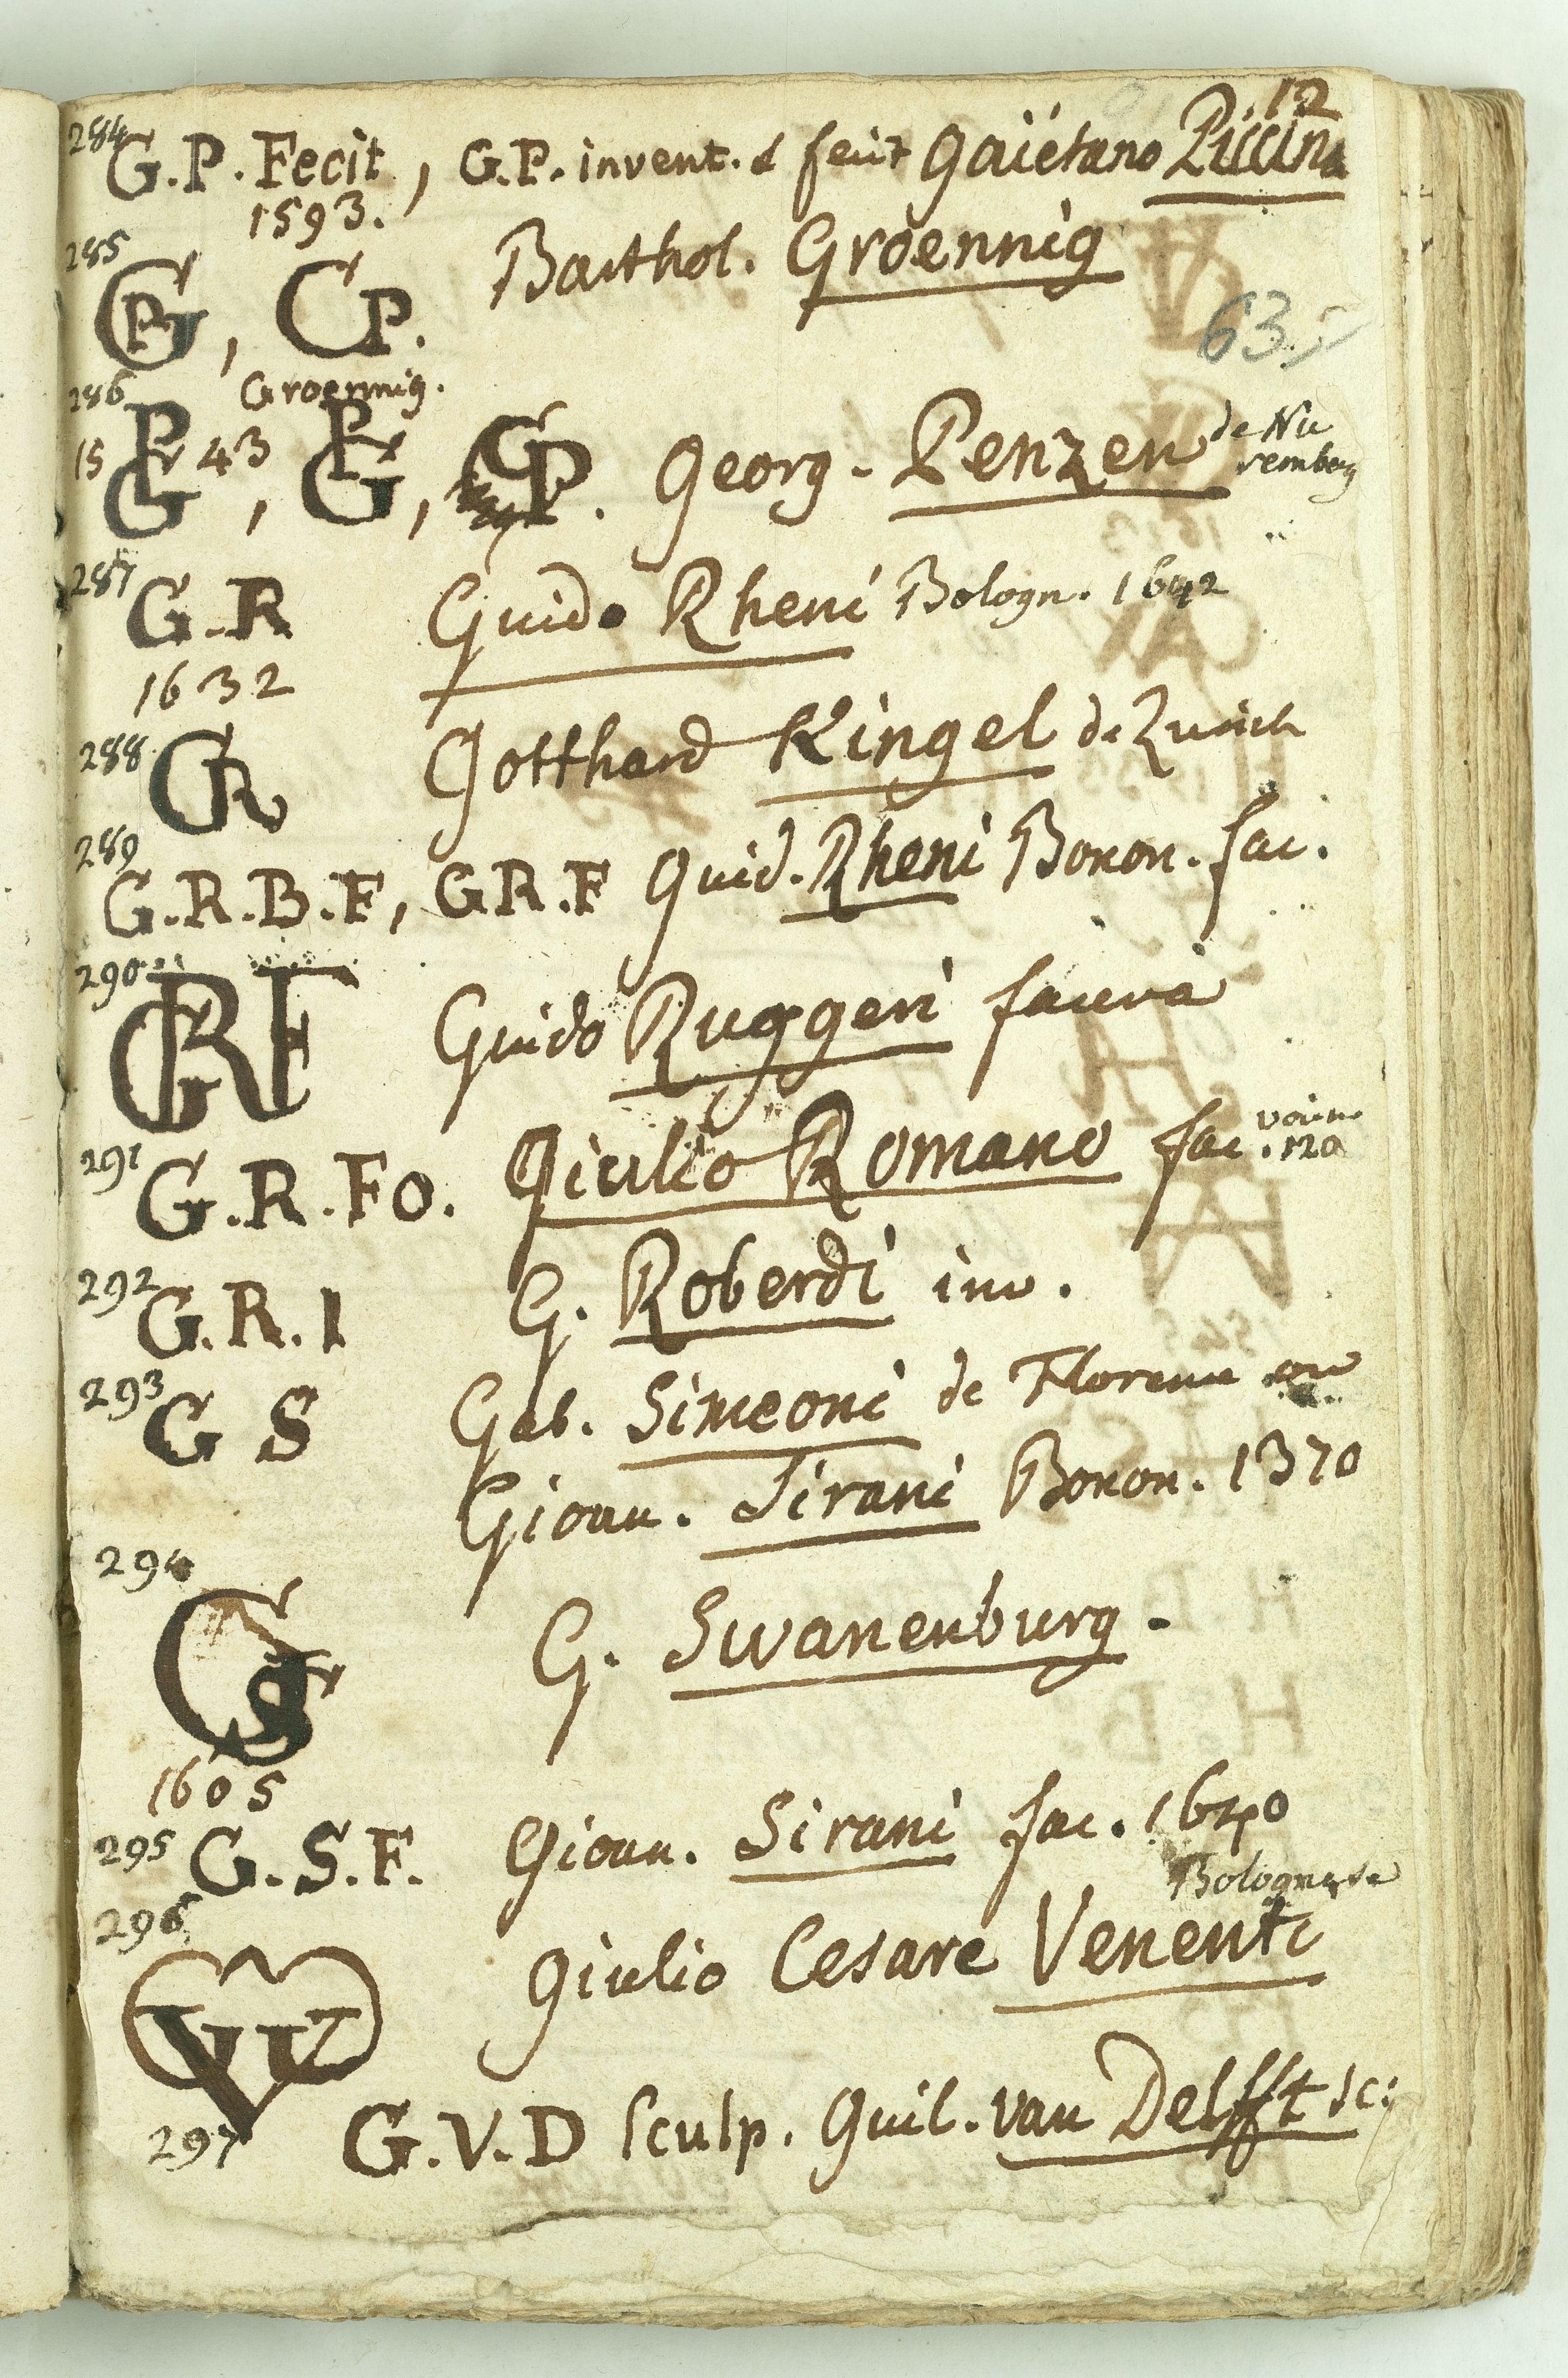 12
284 G.P. Fecit, G.P. invent. & fecit Gaiétano Piccina
1593.
285 GP, CP. Barthol. Groennig
63.
Groennig.
286 15 PG 43, PG, GP. Georg. Penzen de Nu
remberg
287 G.R Guido Rheni Bologn. 1642
1632
288 GR Gotthard Ringel de Zurich
289 G.R.B.F, GR.F Guid. Rheni Bonon. fac.
290 GRF Guido Ruggeri
291 G.R.Fo. Giulio Romano fac.
292 G.R.I G. Roberdi inv.
293 G S Gab. Simeoni de Florence ou
Gioan. Sirani Bonon. 1370
294
GS G. Swanenburg.
1605
295 G.S.F. Gioan. Sirani fac. 1640
Bolognese
296 Giulio Cesare Venenti
297 G.V.D Sculp. Guil. van Delfft sc: